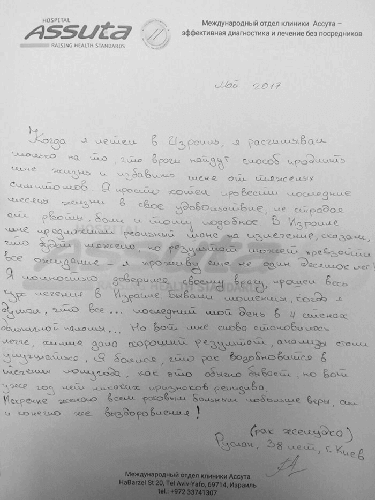 HOSPITAL
Assuta
RAISING HEALTH STANDARDS
Международный отдел клиники Ассута –
эффективная диагностика и лечение без посредников
Май 2017
Когда я летел в Израиль, я рассчитывал
только на то, что врачи найдут способ продлить
мне жизнь и избавить меня от тяжелых
симптомов. Я просто хотел провести последние
месяцы жизни в свое удовольствие, не страдая
от рвоты, боли и тому подобное. В Израиле
мне предложили реальный шанс на излечение, сказали,
что будет тяжело, но результат может превзойти
все ожидания - я проживу еще не один десяток лет.
Я полностью доверился своему врачу, прошел весь
курс лечения. В Израиле бывали моменты, когда я
думал, что все... последний мой день в 4 стенах
больничной палаты... Но вот мне снова становилось
легче, химия дала хороший результат, анализы стали
улучшаться. Я боялся, что рак возобновится в
течении полугода, как это обычно бывает, но вот
уже год нет никаких признаков рецидива.
Искренне желаю всем раковым больным побольше веры, сил
и конечно же выздоровления!
(рак желудка)
Руслан, 38 лет, г. Киев
Международный отдел клиники Ассута
HaBarzel St 20, Tel Aviv-Yafo, 69714, Израиль
tel.: +972 33741367